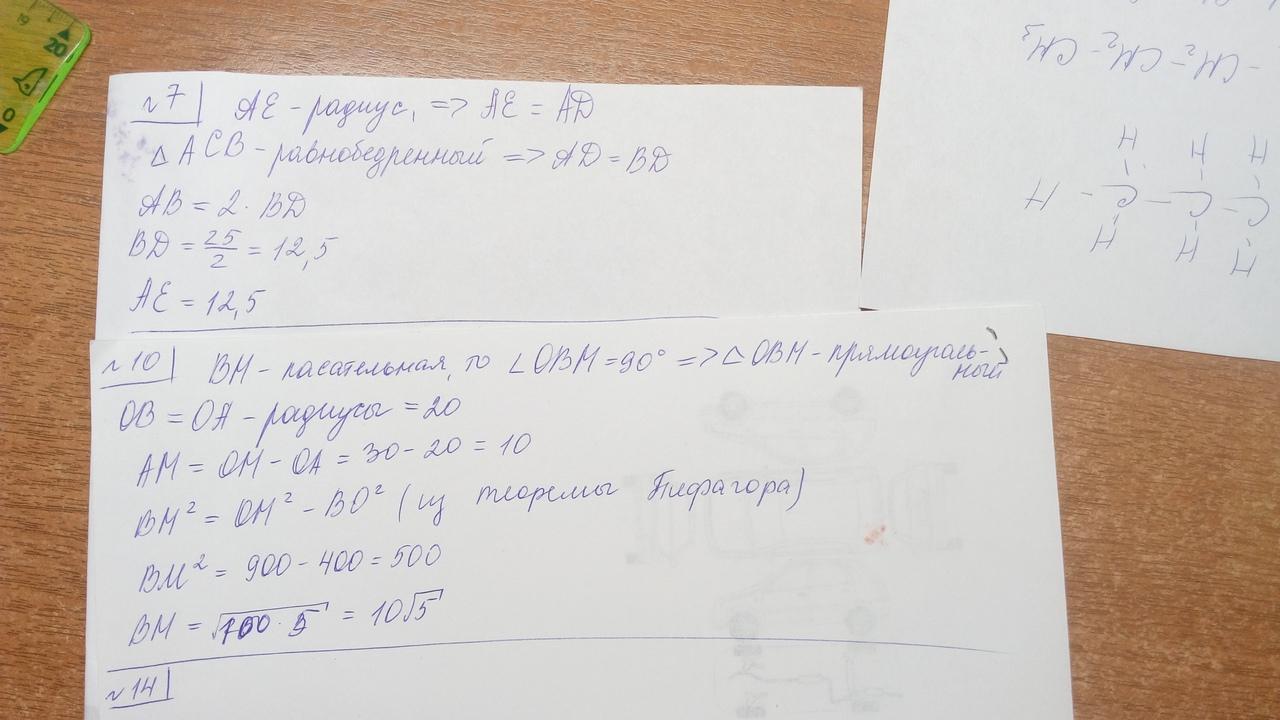 №7 AE - радиус, => AE = AD
△ACB - равнобедренный => AD = BD
AB = 2 · BD
BD = 25/2 = 12,5
AE = 12,5
№10 BM - касательная, то ∠OBM = 90° => △OBM - прямоуголь-
ный
OB = OA - радиусы = 20
AM = OM - OA = 30 - 20 = 10
BM² = OM² - BO² (из теоремы Пифагора)
BM² = 900 - 400 = 500
BM = √100 · 5 = 10√5
№14
- CH₂ - CH₂ - CH₃
H H H
C - C - C - H
H H H
19 20
0